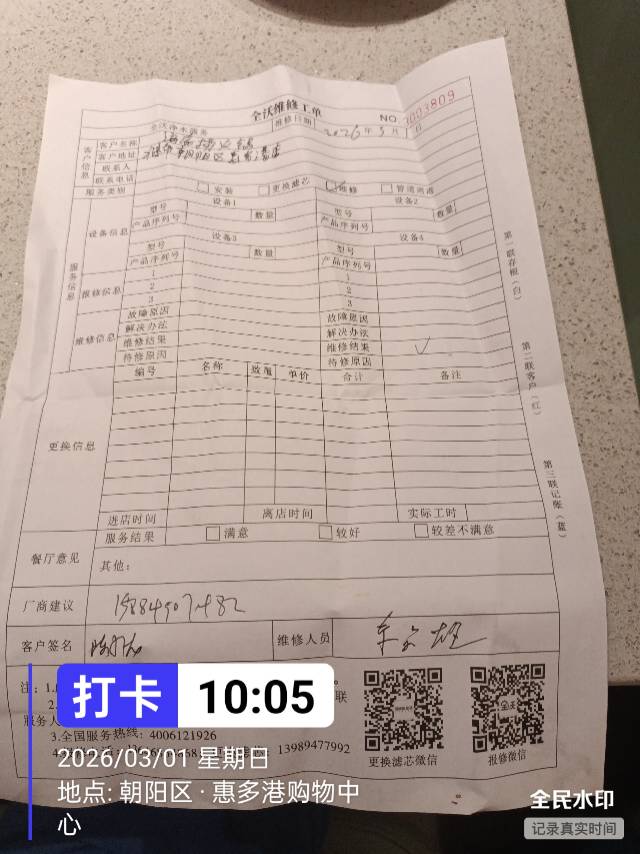 全沃维修工单
全沃净水服务 维修日期 2026年3月1日 NO.1003809
客户信息
客户名称
客户地址 朝阳区惠多港店
联系人
联系电话
服务类别 安装 更换滤芯 维修 管道改造
服务信息
设备信息
设备1 设备2
型号 数量 型号 数量
产品序列号 产品序列号
设备3 设备4
型号 数量 型号 数量
产品序列号 产品序列号
报修信息
1 1
2 2
3 3
维修信息
故障原因 故障原因
解决办法 解决办法
维修结果 维修结果 ✓
待修原因 待修原因
更换信息
编号 名称 数量 单价 合计 备注
进店时间 离店时间 实际工时
餐厅意见
服务结果 满意 较好 较差不满意
其他:
厂商建议 15884907482
客户签名 维修人员
第一联存根(白)
第二联客户(红)
第三联记账(蓝)
注:1.
2. 联
服务人
3.全国服务热线: 4006121926
13989477992
更换滤芯微信 报修微信
打卡 10:05
2026/03/01 星期日
地点: 朝阳区·惠多港购物中
心
全民水印
记录真实时间